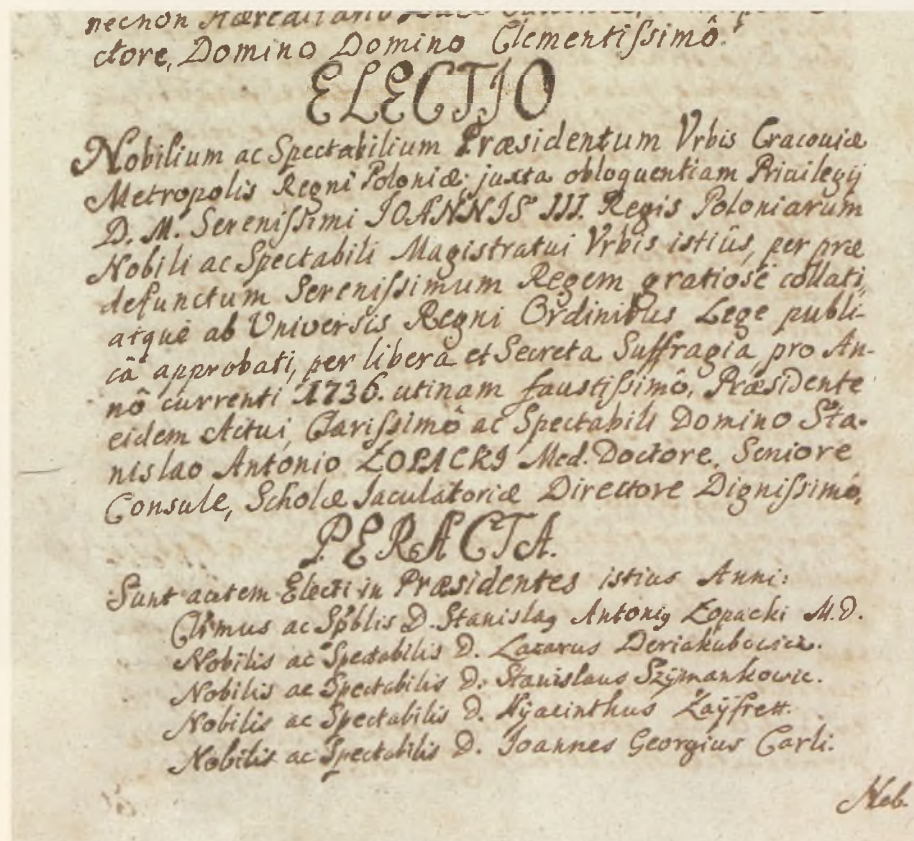 necnon Hæreditario
ctore, Domino Domino Clementiſsimô.
ELECTIO
Nobilium ac Spectabilium Præsidentum Vrbis Cracouiæ
Metropolis Regni Poloniæ juxta obloquentiam Priuilegij
D. M. Sereniſsimi IOANNIS III. Regis Poloniarum
Nobili ac Spectabili Magistratui Vrbis istiûs, per præ
defunctum Sereniſsimum Regem gratiosè collati,
atquè ab Universis Regni Ordinibus Lege publi-
câ approbati, per libera et Secreta Suffragia, pro An-
nô currenti 1736. utinam faustiſsimô, Præsidente
eidem Actui, Clariſsimô ac Spectabili Domino Sta-
nislao Antonio ŁOPACKI Med. Doctore, Seniore
Consule, Scholæ Jaculatoriæ Directore Digniſsimô,
PERACTA.
Sunt autem Electi in Præsidentes istius Anni:
Clſimus ac Spblis D. Stanislaꝯ Antoniꝯ Łopacki M.D.
Nobilis ac Spectabilis D. Lazarus Deriakubowicz.
Nobilis ac Spectabilis D. Stanislaus Szÿmankowic.
Nobilis ac Spectabilis D. Hÿacinthus Zaÿfrett.
Nobilis ac Spectabilis D. Ioannes Georgius Carli.
Nob.